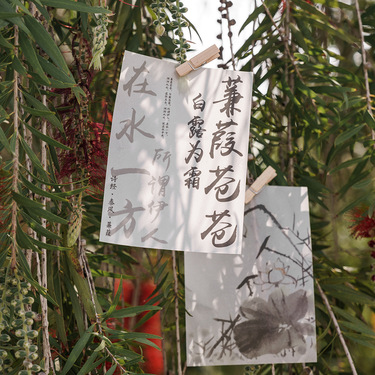 蒹葭苍苍
白露为霜
所谓伊人
在水一方
诗经·秦风·蒹葭